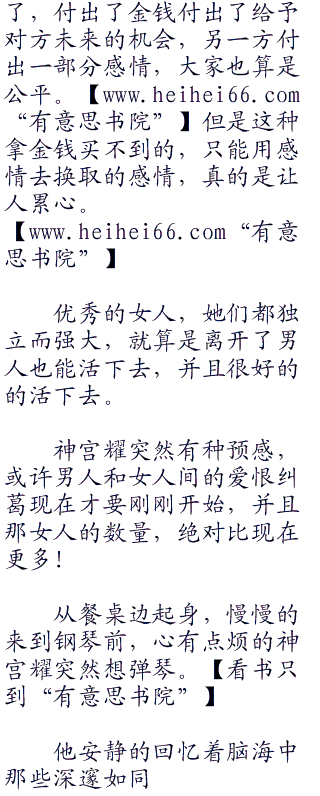 了，付出了金钱付出了给予
对方未来的机会，另一方付
出一部分感情，大家也算是
公平。【www.heihei66.com
“有意思书院”】但是这种
拿金钱买不到的，只能用感
情去换取的感情，真的是让
人累心。
【www.heihei66.com“有意
思书院”】
优秀的女人，她们都独
立而强大，就算是离开了男
人也能活下去，并且很好的
的活下去。
神宫耀突然有种预感，
或许男人和女人间的爱恨纠
葛现在才要刚刚开始，并且
那女人的数量，绝对比现在
更多！
从餐桌边起身，慢慢的
来到钢琴前，心有点烦的神
宫耀突然想弹琴。【看书只
到“有意思书院”】
他安静的回忆着脑海中
那些深邃如同